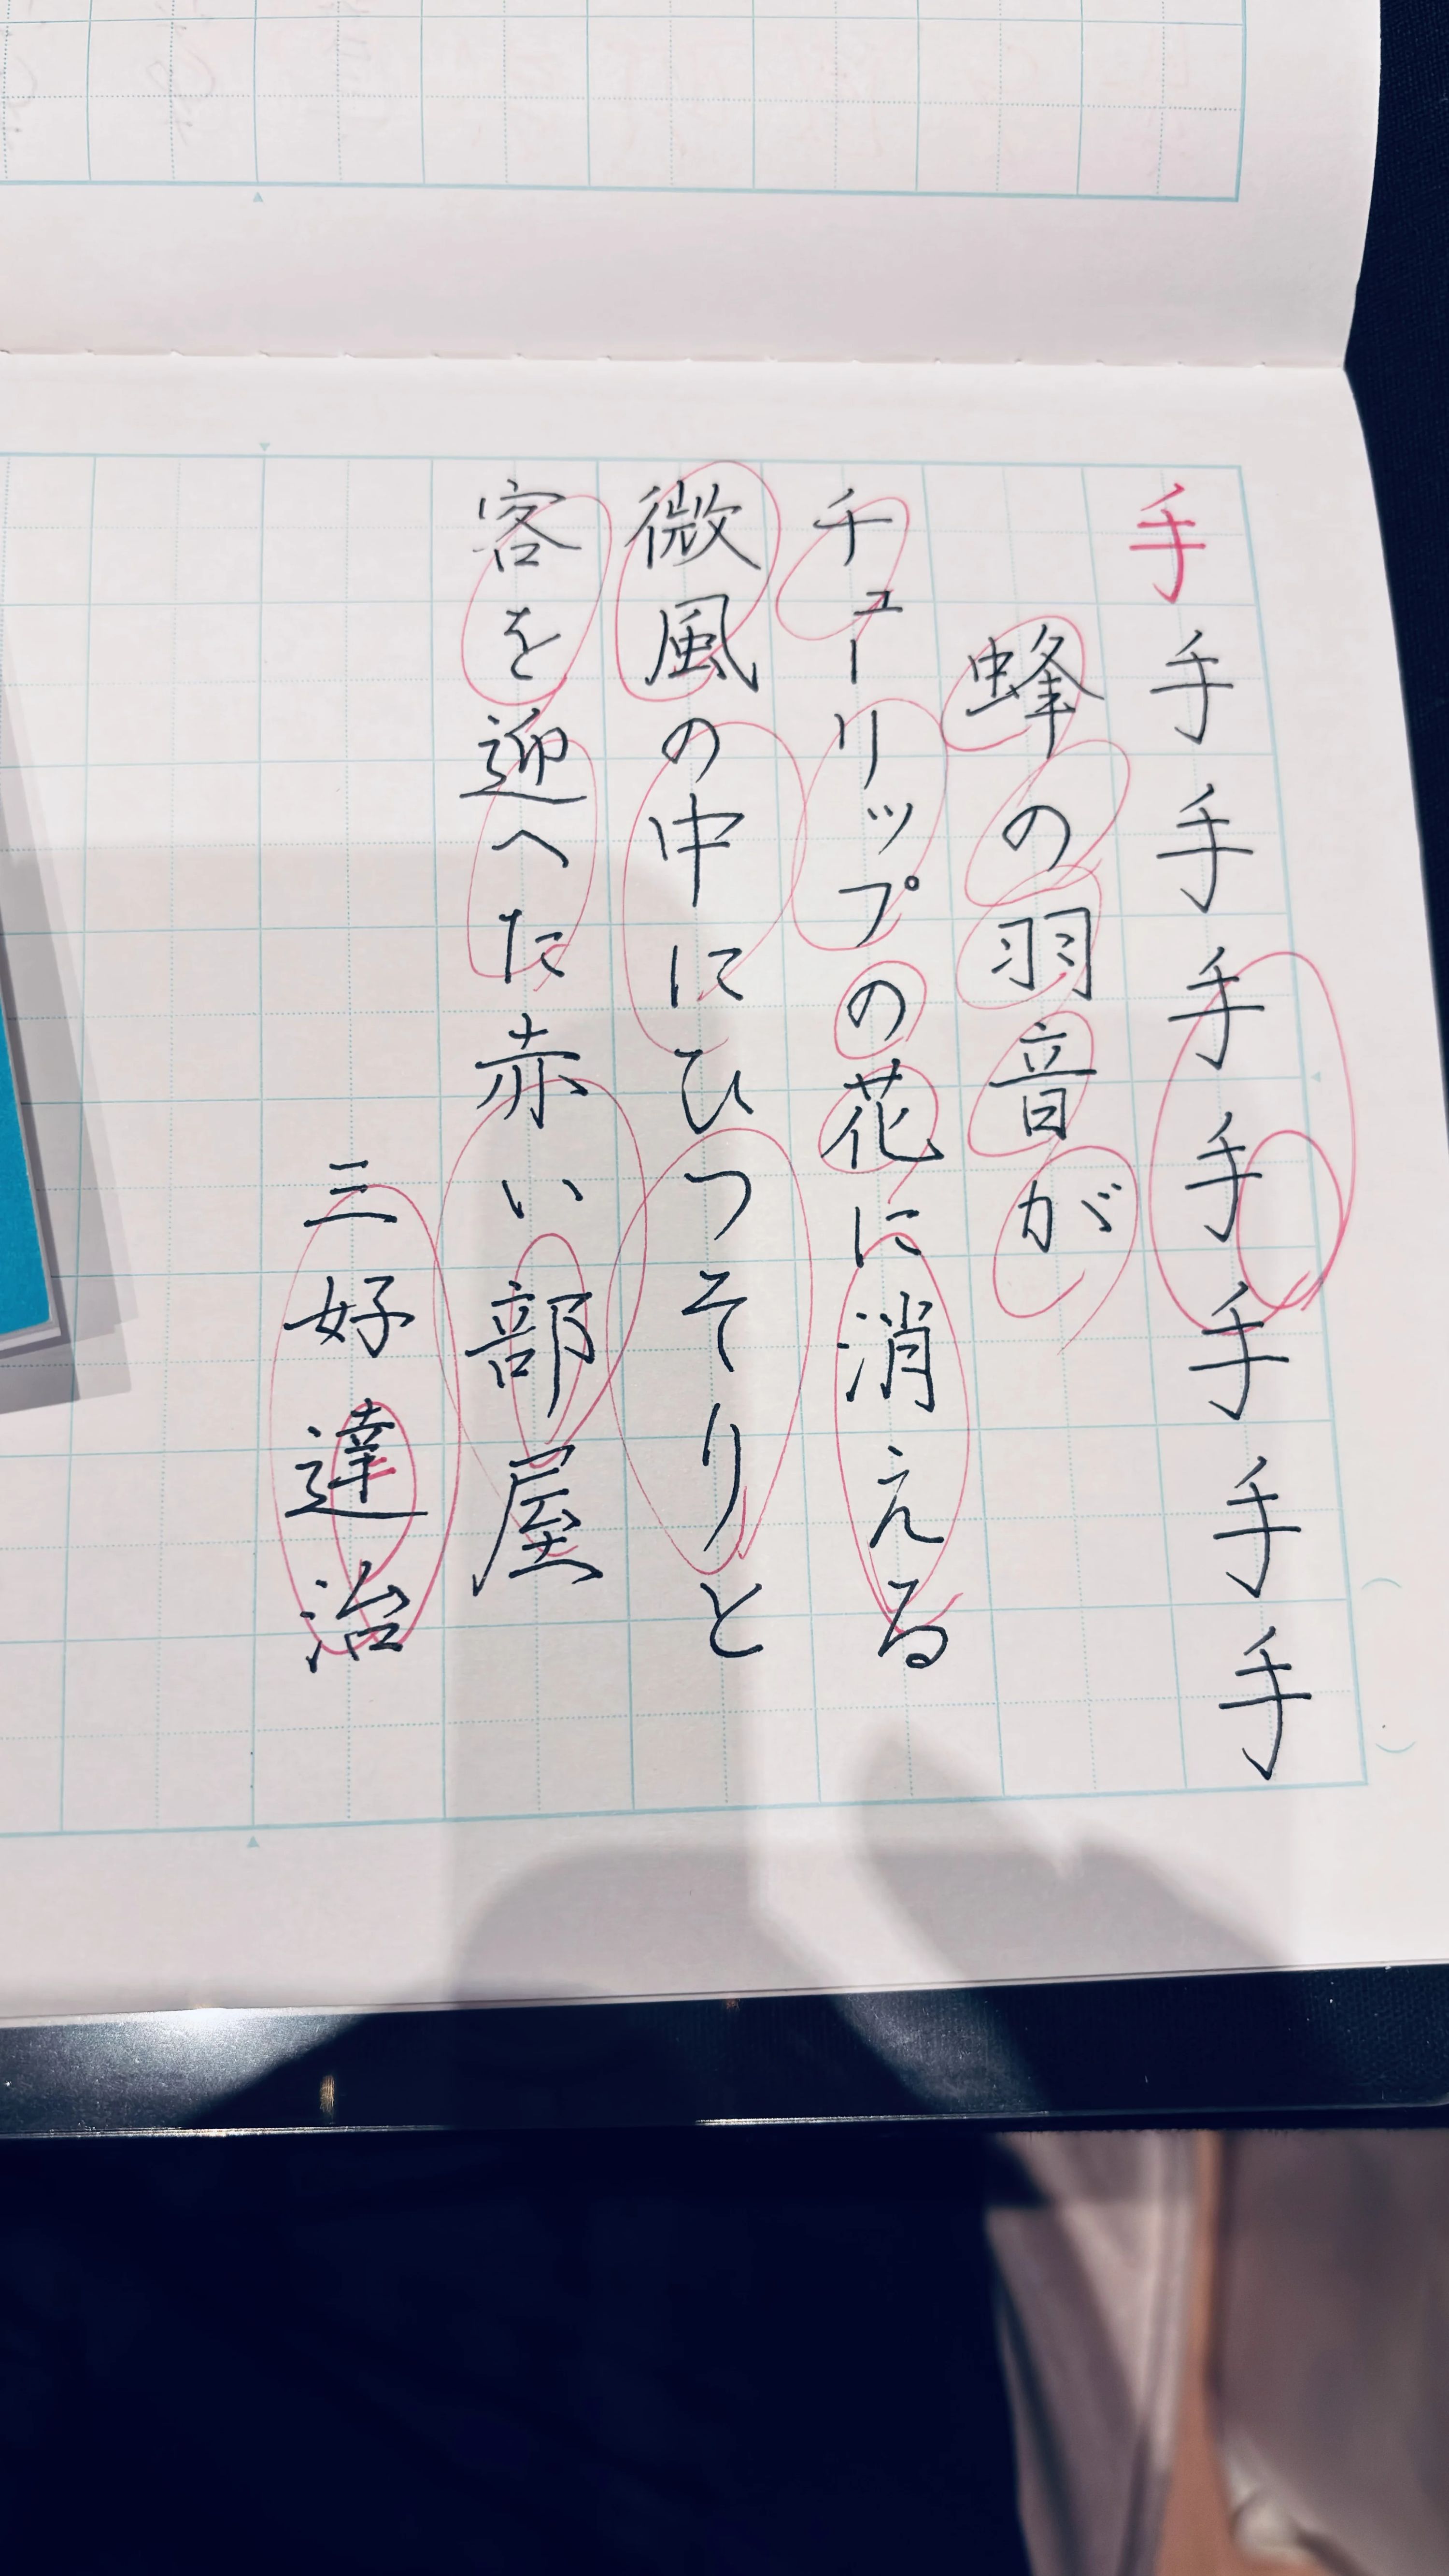 手手手手手手手手
蜂の羽音が
チューリップの花に消える
微風の中にひつそりと
客を迎へた赤い部屋
三好達治